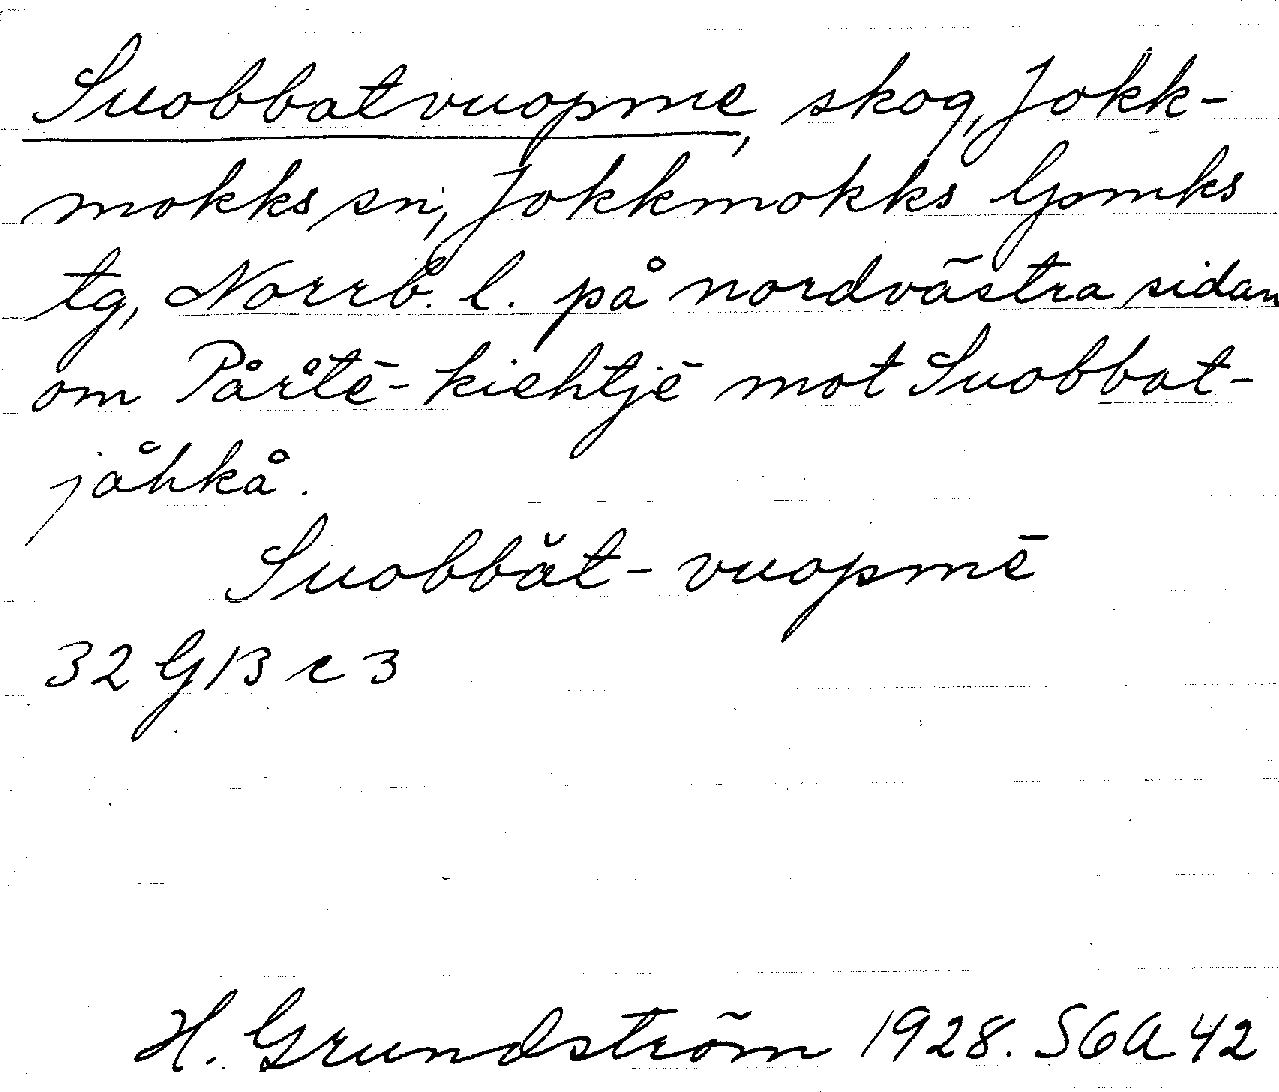 Suobbatvuopme, skog, Jokk-
mokks sn, Jokkmokks Gsmks
tg, Norrb. l. på nordvästra sidan
om Pårtē-kiehtjē mot Suobbat-
jåhkå.
Suobbăt-vuopmē
32 G 13 c 3
H. Grundström 1928. SGA 42